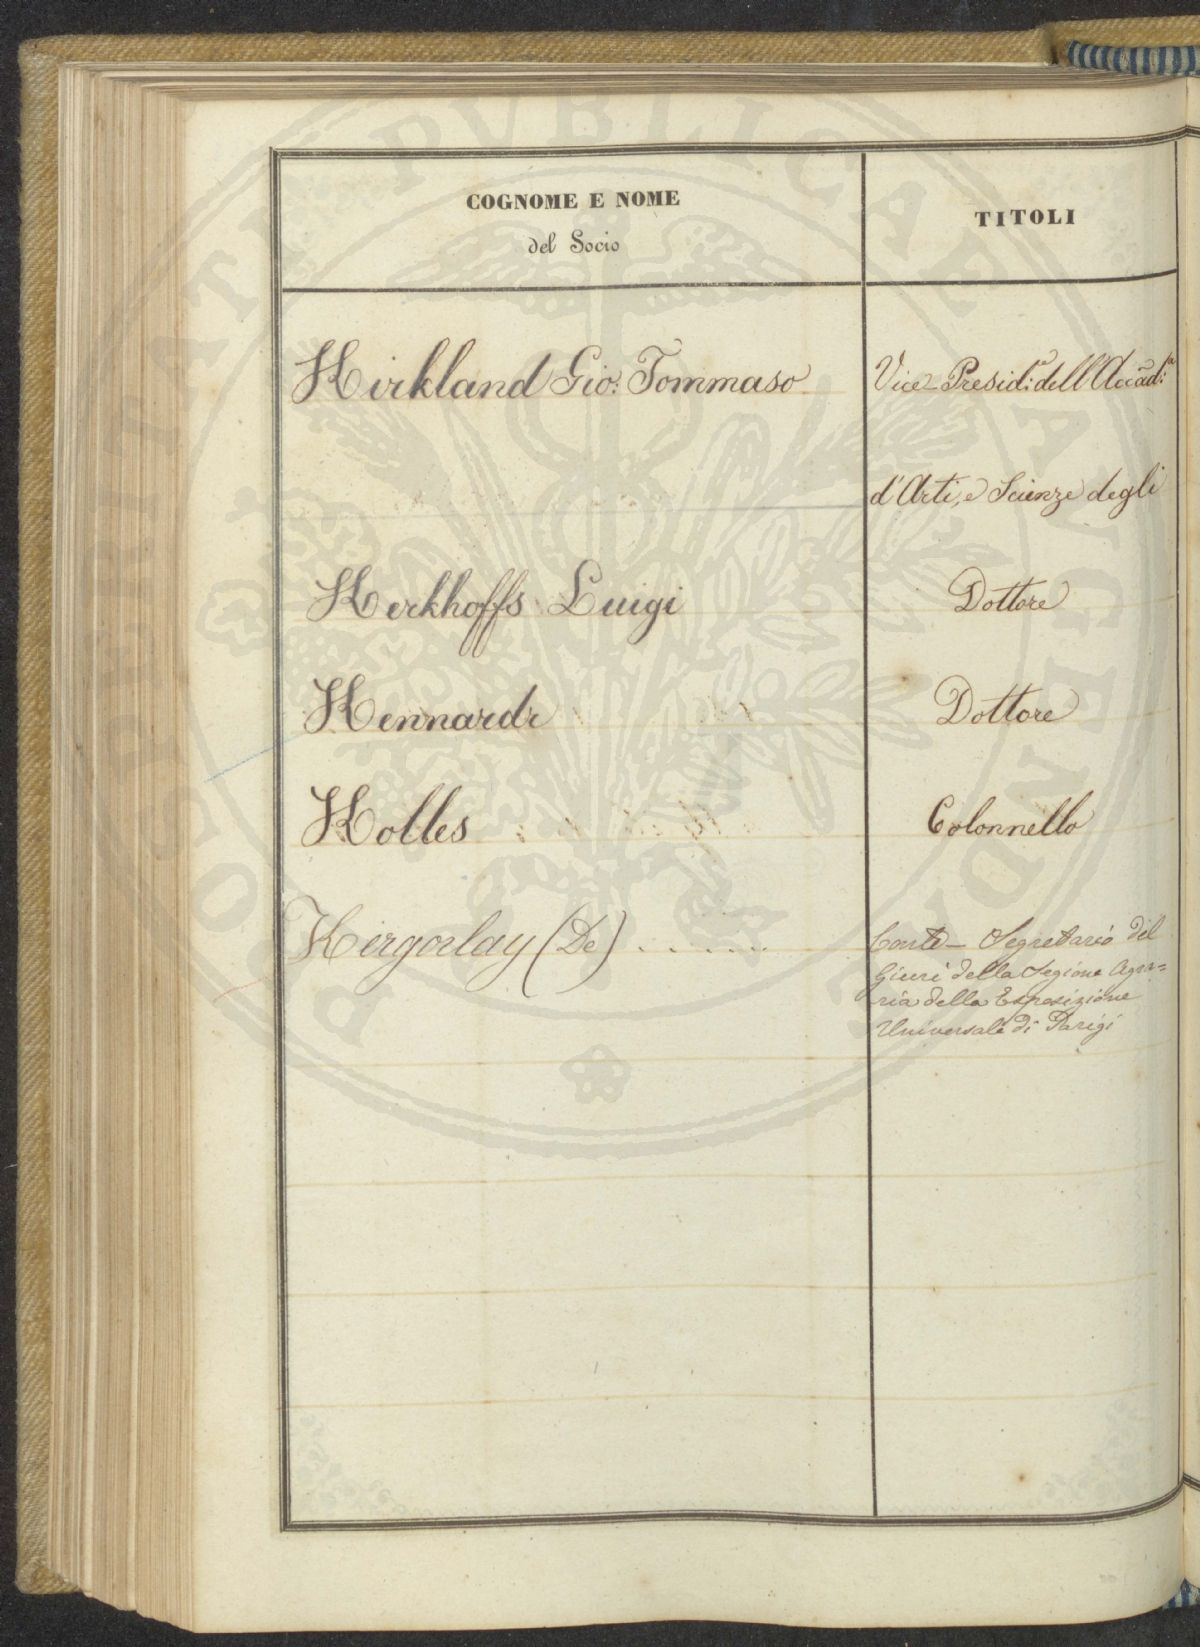 COGNOME E NOME
del Socio
TITOLI
Kirkland Gio: Tommaso
Vice Presid:e dell'Accad:a
d'Arti, e Scienze degli
Kerkhoffs Luigi
Dottore
Kennardi
Dottore
Kolles
Colonnello
Kergorlay (De) . . . . . .
Conte - Segretario del
Giurì della Sezione Agra=
ria della Esposizione
Universale di Parigi
PUBLICAE AUGENDAE